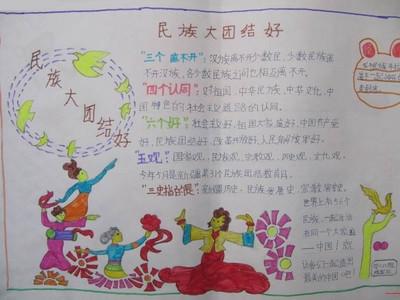 民族大团结好
民族大团结好
"三个离不开":汉族离不开少数民,少数民族离
不开汉族,各少数民族之间也相互离不开。
"四个认同":对祖国,中华民族,中华文化,中
国特色的社会主义道路的认同。
"六个好":社会主义好,祖国大家庭好,中国共产党
好,民族团结好,改革开放好,人民解放军好。
五观:国家观,民族观,宗教观,历史观,文化观,
今年5月是新疆第31个民族团结教育月。
"三史指的是":新疆历史,民族发展史,宗教演变史,
世界上有56个
民族,一起生活
在同一个大家庭
——中国!您
最美的中国吧!